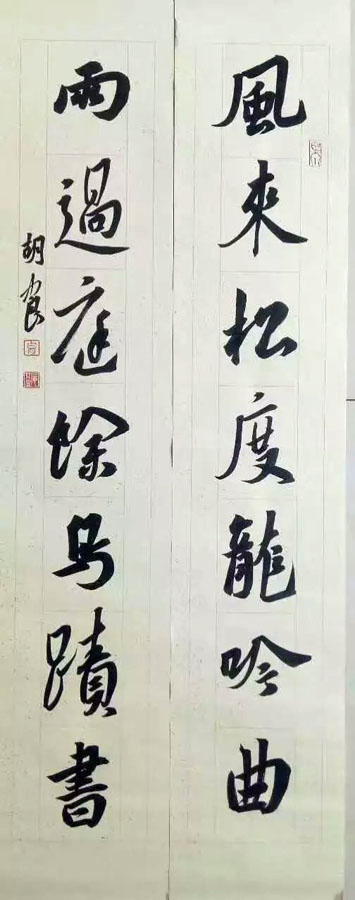 風來松度龍吟曲
雨過庭餘鳥蹟書
胡